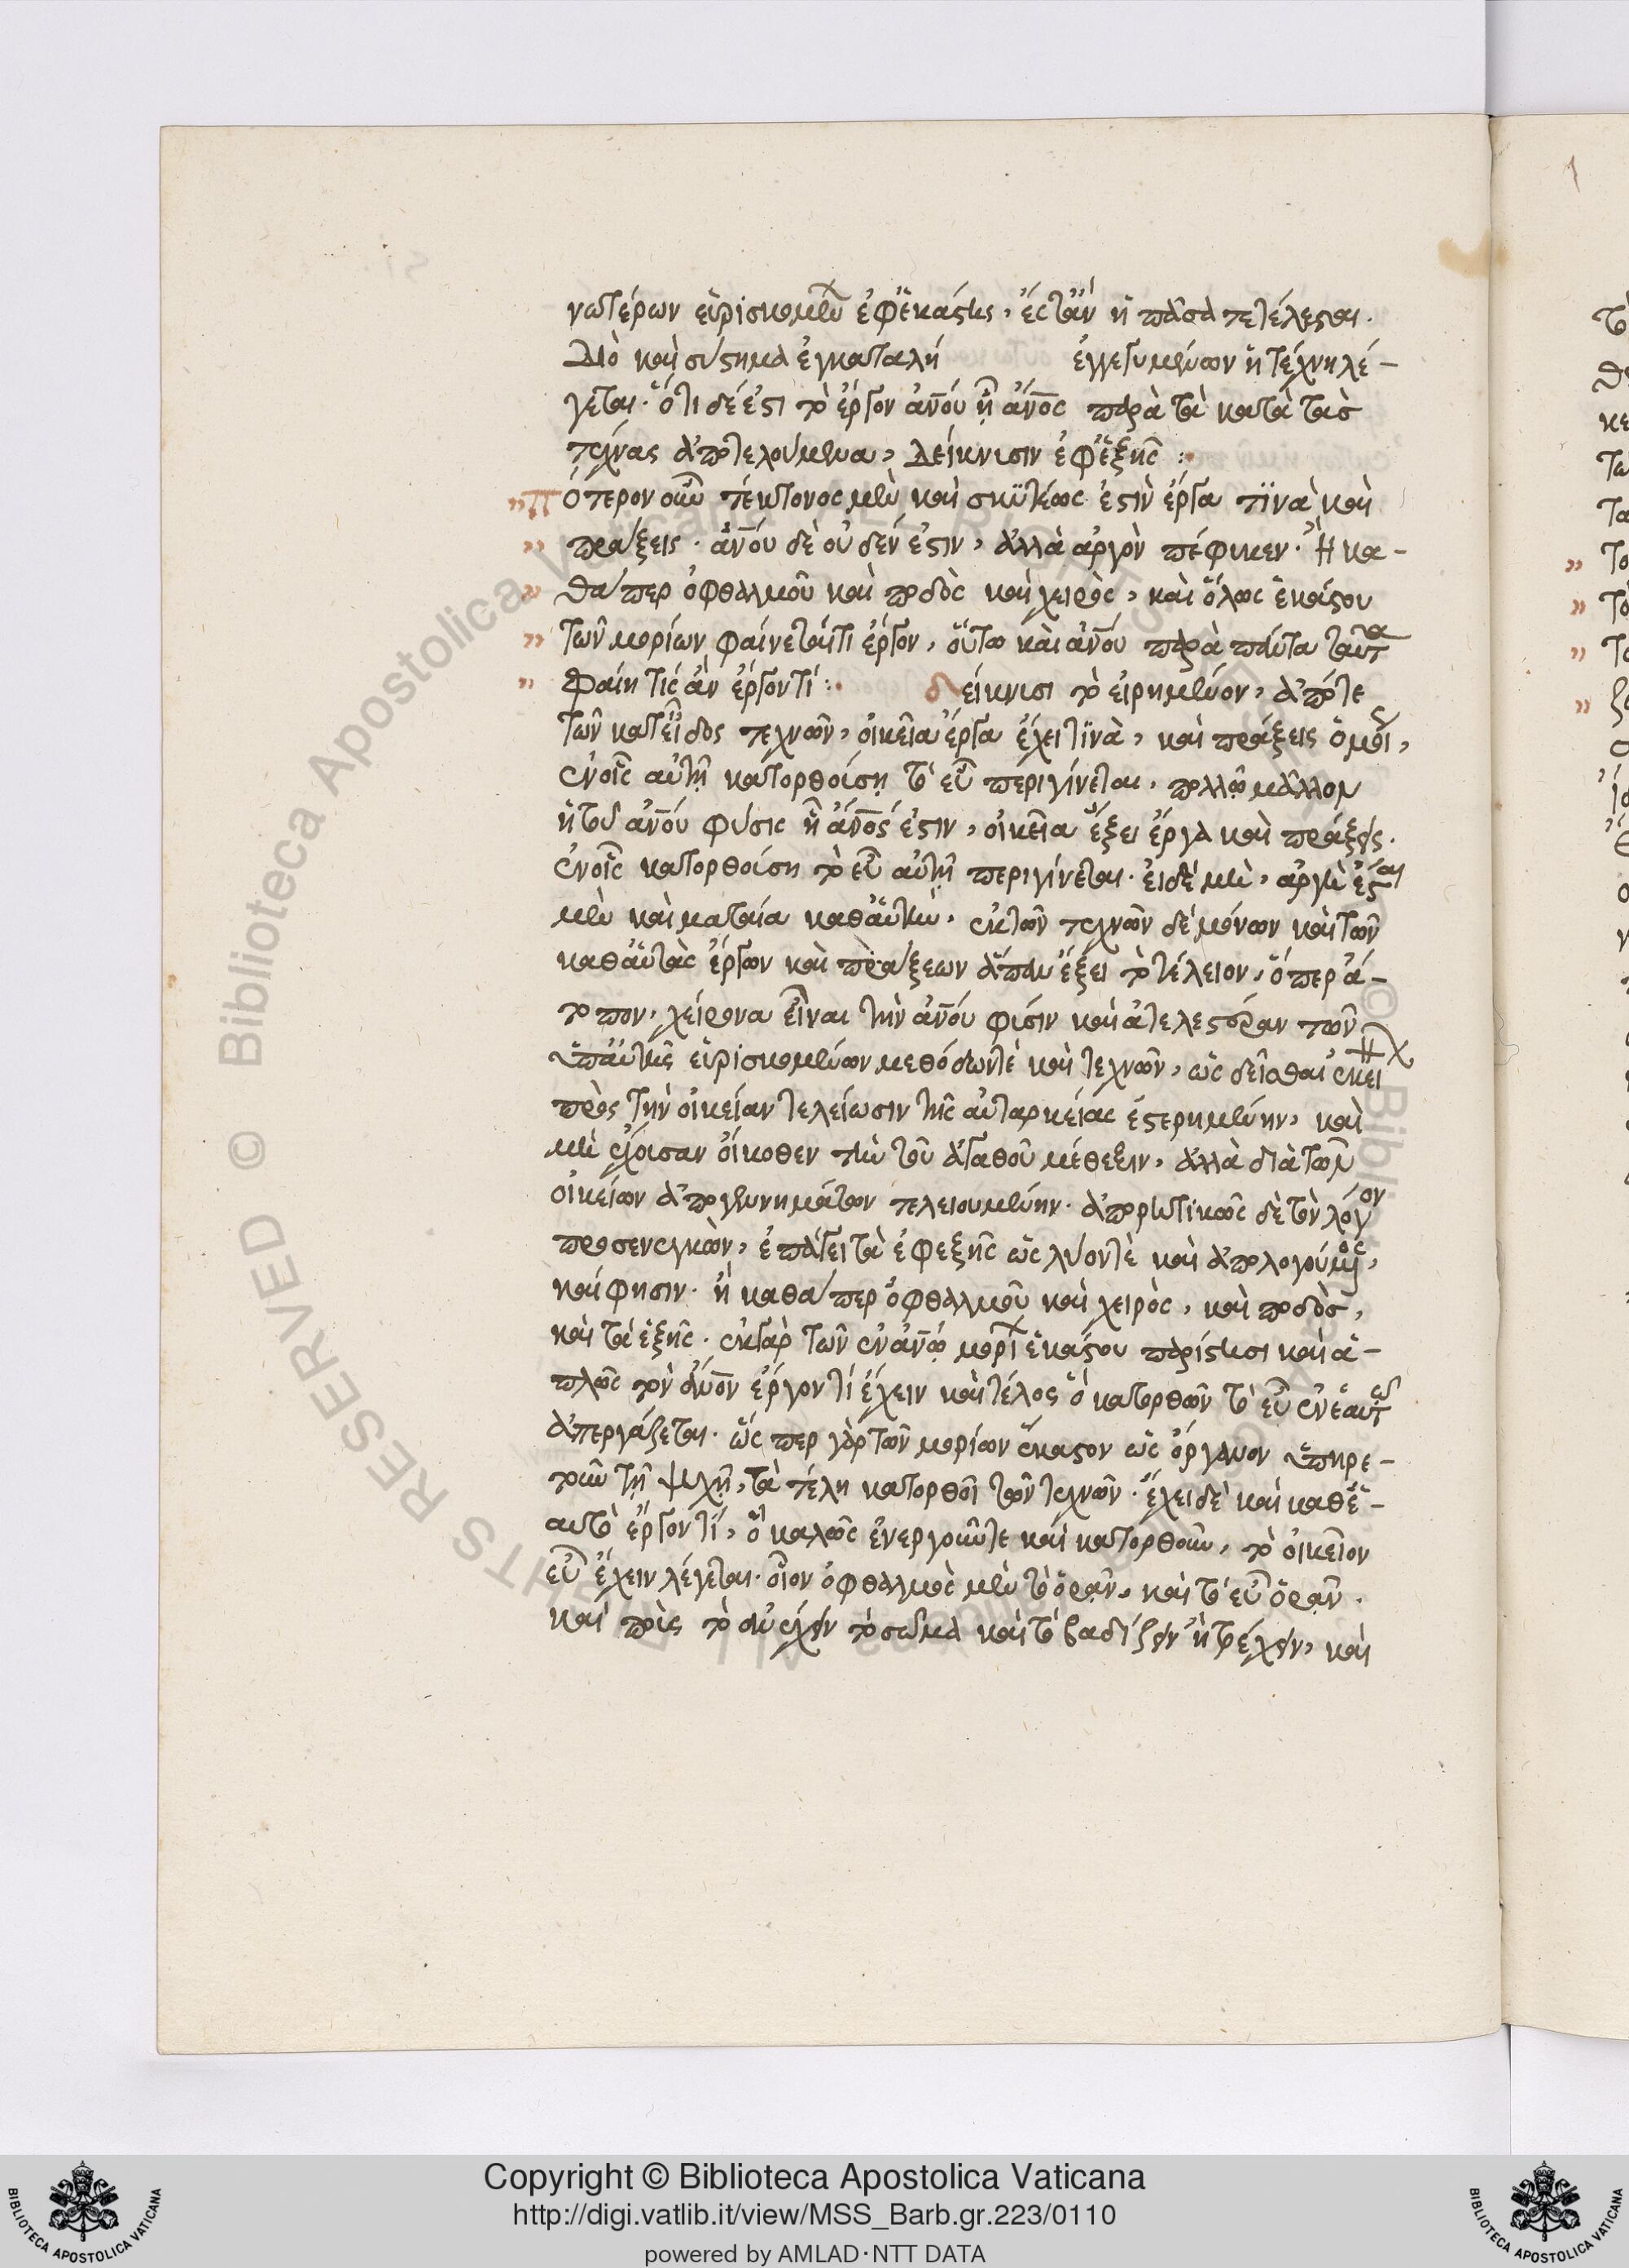 νωτέρων εὑρισκομένων ἐφ' ἑκάστης, ἔστ' ἂν ἡ πᾶσα τετέλεσται.
Διὸ καὶ σύστημα ἐγκαταλή ἐγγεγυμνων ἡ τέχνη λέ-
γεται. ὅτι δέ ἐστι τὸ ἔργον ἀνου ᾗ ἄνος παρὰ τὰ κατὰ τὰς
τέχνας ἀποτελούμενα, Δείκνυσιν ἐφεξῆς :·
» Πότερον οὖν τέκτονος μὲν καὶ σκυτέως ἐστὶν ἔργα τϊνὰ καὶ
» πράξεις. ἀνου δὲ οὐδέν ἐστιν, ἀλλὰ ἀργὸν πέφυκεν. Ἢ κα-
» θάπερ ὀφθαλμοῦ καὶ ποδὸς καὶ χειρὸς, καὶ ὅλως ἑκάστου
» τῶν μορίων φαίνεταί τι ἔργον, οὕτω καὶ ἀνου παρὰ πάντα ταῦτα
» φαίη τίς ἂν ἔργον τί :· δείκνυσι τὸ εἰρημένον, ἀπό τε
τῶν κατ' εἶδος τεχνῶν, οἰκεῖα ἔργα ἔχει τϊνὰ, καὶ πράξεις ὁμοί,
ἐν οἷς αὐτῇ κατορθούσῃ τὸ εὖ περιγίνεται. πολλῷ μᾶλλον
ἡ τοῦ ἀνου φύσις ᾗ ἄνος ἐστιν, οἰκεῖα ἕξει ἔργα καὶ πράξεις.
ἐν οἷς κατορθούσῃ τὸ εὖ αὐτῇ περιγίνεται. εἰ δὲ μὴ, ἀργὴ ἔσται
μὲν καὶ ματαία καθ' αὑτὴν. ἐκ τῶν τεχνῶν δὲ μόνων καὶ τῶν
καθ' αὑτὰς ἔργων καὶ πράξεων ἅπαν ἕξει τὸ τέλειον, ὅπερ ἄ-
τοπον, χείρονα εἶναι τὴν ἀνου φύσιν καὶ ἀτελεστέραν τῶν
ὑπ' αὐτῆς εὑρισκομένων μεθόδων τὲ καὶ τεχνῶν, ὡς δεῖσθαι ἐκεί
πρὸς τὴν οἰκείαν τελείωσιν τῆς αὐταρκείας ἐστερημένην, καὶ
μὴ ἔχουσαν οἴκοθεν τὴν τοῦ ἀγαθοῦ μέθεξιν, ἀλλὰ διὰ τῶν
οἰκείων ἀπογεννημάτων τελειουμένην. ἀπορητικῶς δὲ τὸν λόγον
προσενεγκὼν, ἐπάγει τὰ ἐφεξῆς ὡς λύον τὲ καὶ ἀπολογούμενος,
καί φησιν. ἢ καθάπερ ὀφθαλμοῦ καὶ χειρὸς, καὶ ποδὸς,
καὶ τὰ ἑξῆς. ἐκ γὰρ τῶν ἐν ἀνῳ μορί ἑκάστου παρίστησι καὶ ἁ-
πλῶς τὸν ἄνον ἔργον τί ἔχειν καὶ τέλος ὃ κατορθῶν τὸ εὖ ἐν ἑαυτ
ἀπεργάζεται. ὥς περ γὰρ τῶν μορίων ἕκαστον ὡς ὄργανον ὑπηρε-
τοῦν τῇ ψυχῇ, τὰ τέλη κατορθοῖ τῶν τεχνῶν. ἔχει δὲ καὶ καθ' ἑ-
αυτὸ ἔργον τί, ὃ καλῶς ἐνεργοῦν τε καὶ κατορθοῦν, τὸ οἰκεῖον
εὖ ἔχειν λέγεται. οἷον ὀφθαλμὸς μὲν τὸ ὁρᾷν, καὶ τὸ εὖ ὁρᾷν.
καὶ ποὺς τὸ ἀνέχειν τὸ σῶμα καὶ τὸ βαδίζειν ἢ τρέχειν, καὶ
Copyright © Biblioteca Apostolica Vaticana
http://digi.vatlib.it/view/MSS_Barb.gr.223/0110
powered by AMLAD·NTT DATA